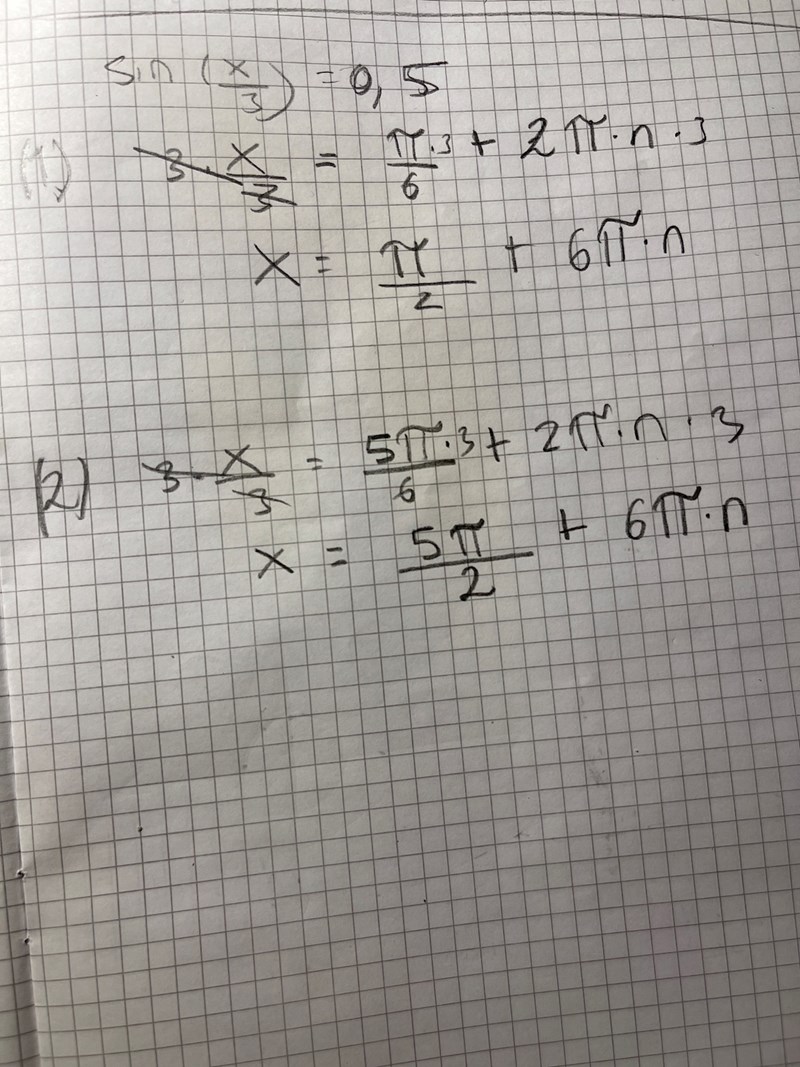 sin (x/3) = 0,5
(1) 3 · x/3 = π·3/6 + 2π·n·3
x = π/2 + 6π·n
(2) 3 · x/3 = 5π·3/6 + 2π·n·3
x = 5π/2 + 6π·n